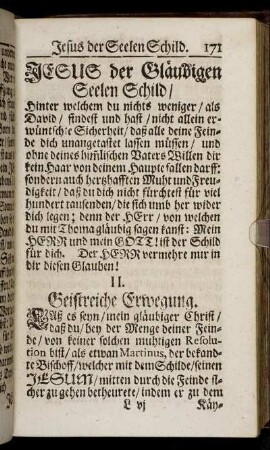 Jesus der Seelen Schild. 171
JESUS der Gläubigen
Seelen Schild/
Hinter welchem du nichts weniger/ als
David/ findest und hast/ nicht allein er-
wünschte Sicherheit/ daß alle deine Fein-
de dich unangetastet lassen müssen/ und
ohne deines himlischen Vaters Willen dir
kein Haar von deinem Haupte fallen darff:
sondern auch hertzhafften Muht und Freu-
digkeit/ daß du dich nicht fürchtest für viel
hundert tausenden/ die sich umb her wider
dich legen; denn der HErr/ von welchen
du mit Thoma gläubig sagen kanst: Mein
HERR und mein GOTT! ist der Schild
für dich. Der HERR vermehre nur in
dir diesen Glauben!
II.
Geistreiche Erwegung.
LAß es seyn/ mein gläubiger Christ/
daß du/ bey der Menge deiner Fein-
de/ von keiner solchen muhtigen Resolu-
tion bist/ als etwan Martinus, der bekand-
te Bischoff/ welcher mit dem Schilde/ seinen
JESUM/ mitten durch die Feinde si-
cher zu gehen betheurete/ indem er zu dem
L vj Käy-